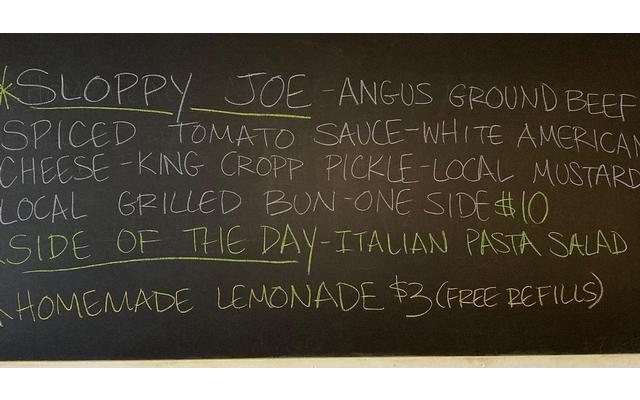 *SLOPPY JOE - ANGUS GROUND BEEF
SPICED TOMATO SAUCE - WHITE AMERICAN
CHEESE - KING CROPP PICKLE - LOCAL MUSTARD
LOCAL GRILLED BUN - ONE SIDE $10
SIDE OF THE DAY - ITALIAN PASTA SALAD
HOMEMADE LEMONADE $3 (FREE REFILLS)